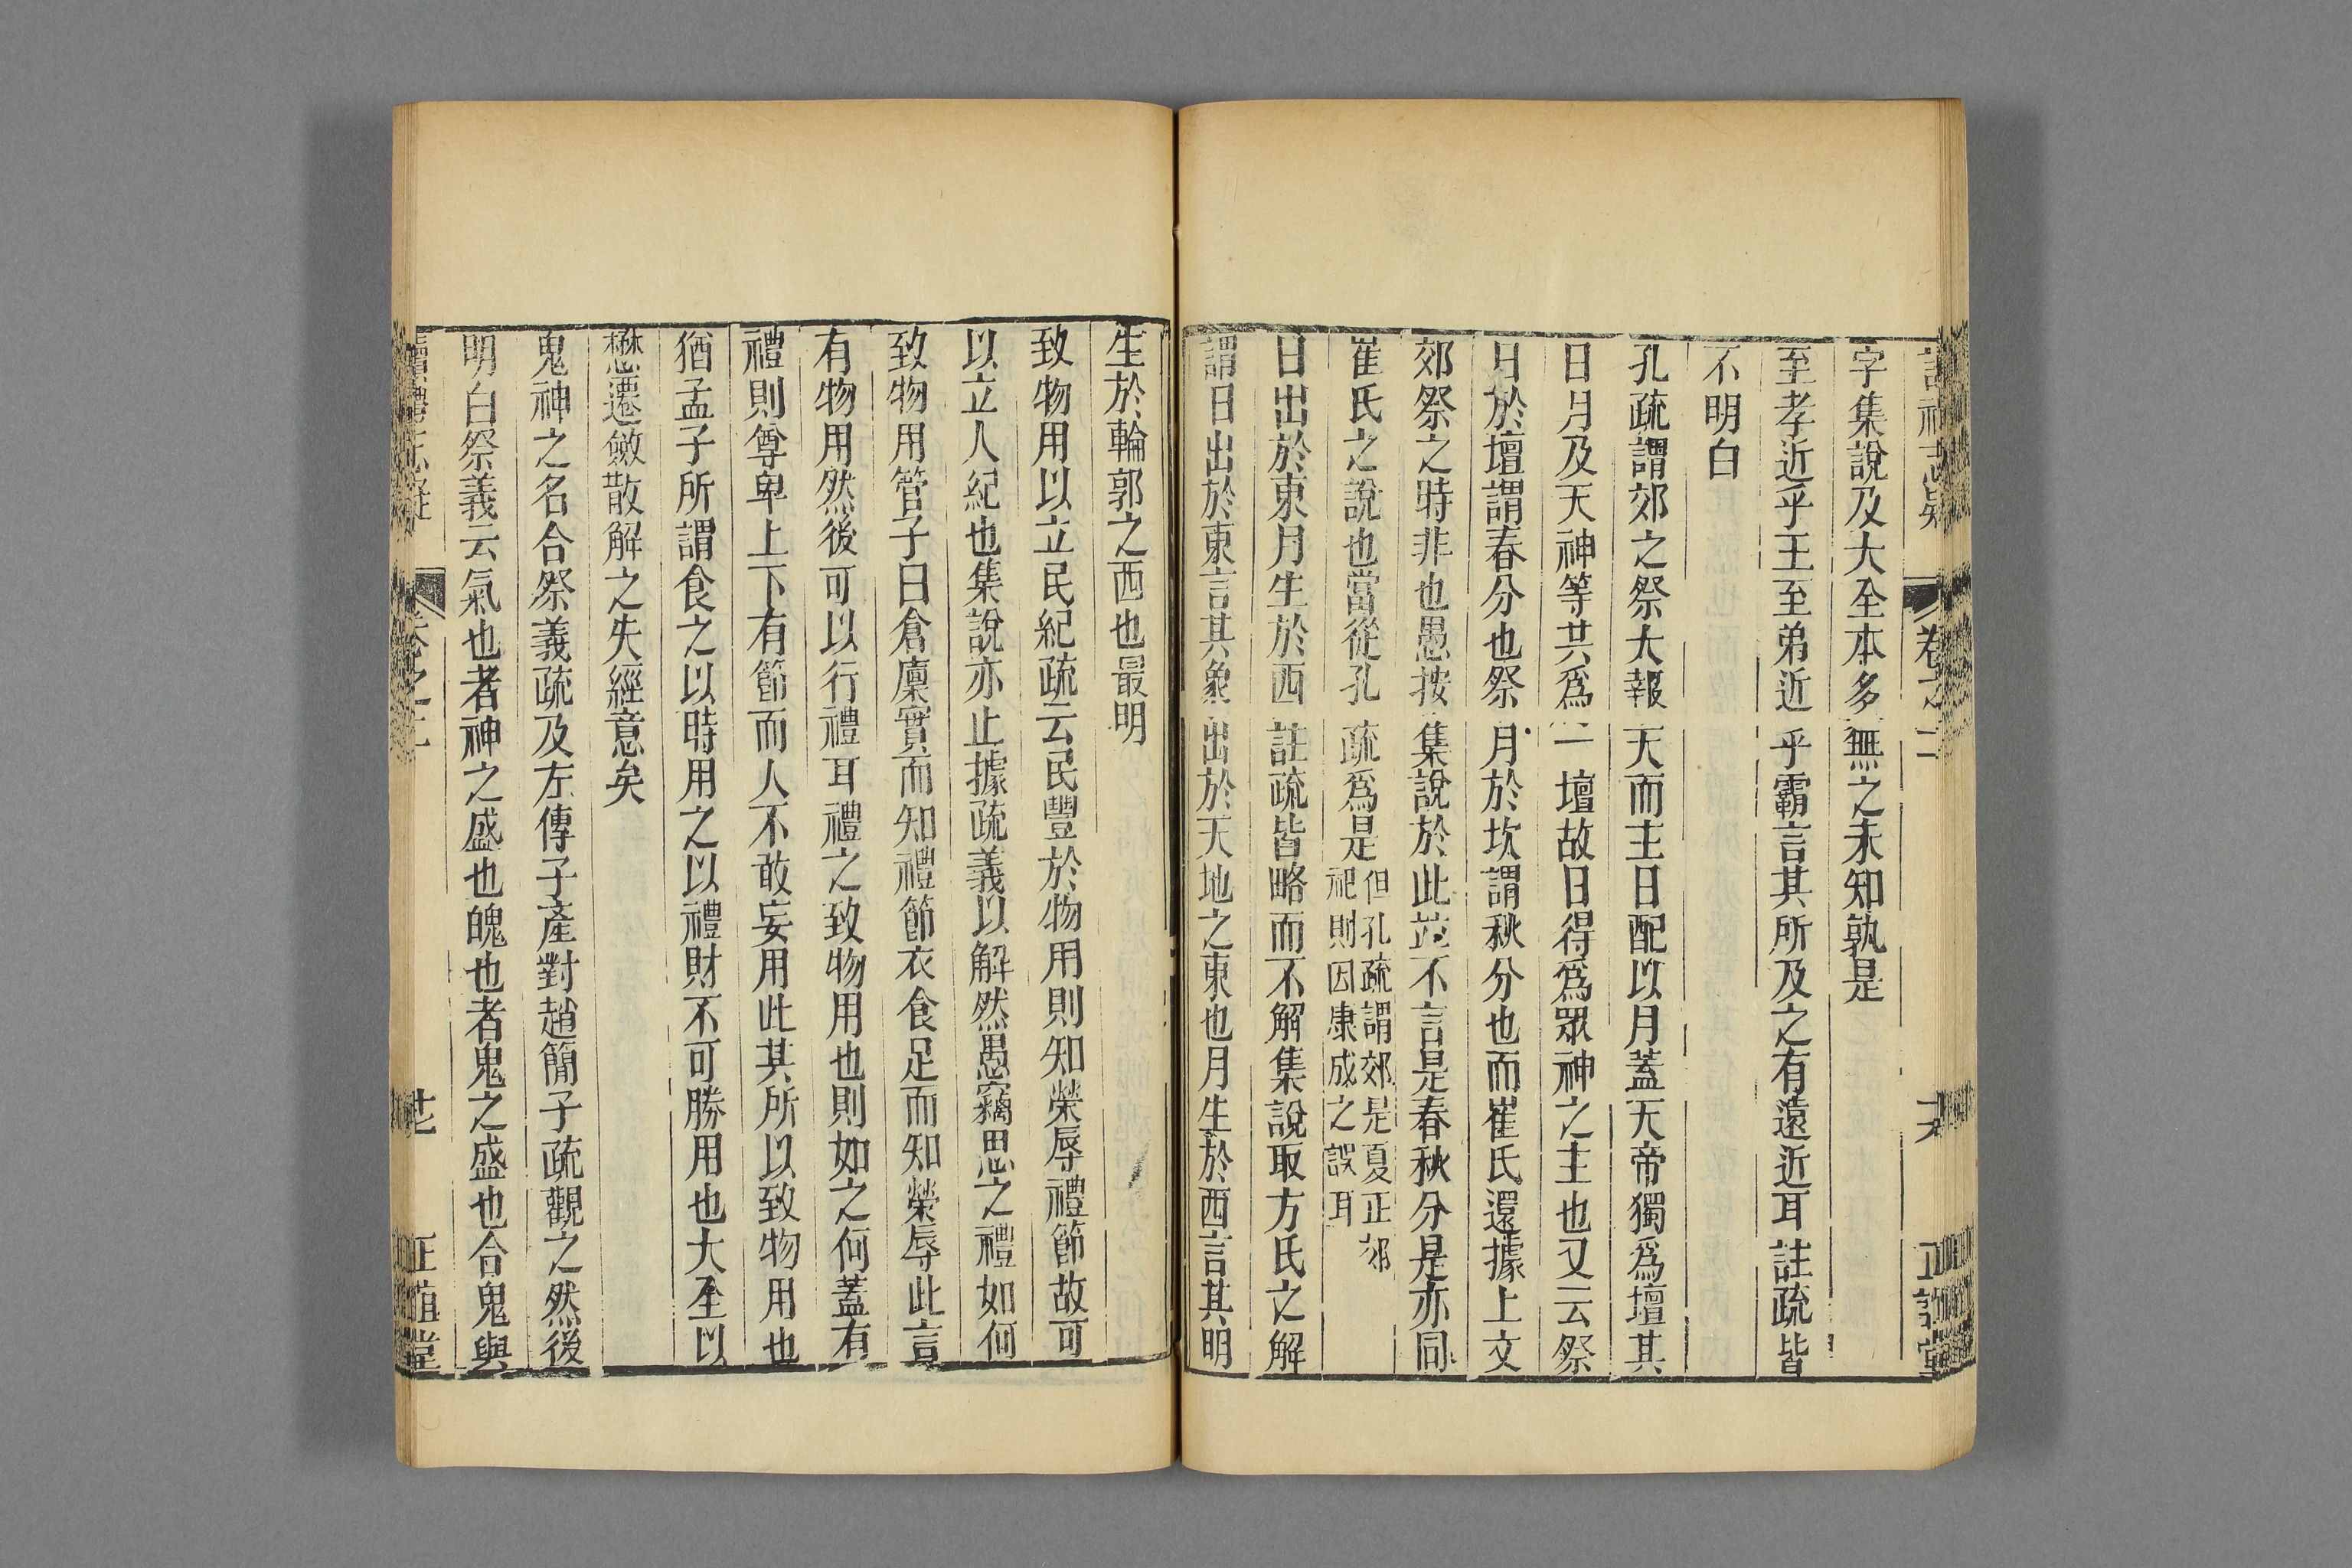 讀禮志疑
卷之二
正誼堂
字集說及大全本多無之未知孰是
至孝近乎王至弟近乎霸言其所及之有遠近耳註疏皆
不明白
孔疏謂郊之祭大報天而主日配以月蓋天帝獨爲壇其
日月及天神等共爲一壇故日得爲眾神之主也又云祭
日於壇謂春分也祭月於坎謂秋分也而崔氏還據上文
郊祭之時非也愚按集說於此竝不言是春秋分是亦同
崔氏之說也當從孔疏爲是但孔疏謂郊是夏正郊
祀則因康成之誤耳
日出於東月生於西註疏皆略而不解集說取方氏之解
謂日出於東言其象出於天地之東也月生於西言其明
生於輪郭之西也最明
致物用以立民紀疏云民豐於物用則知榮辱禮節故可
以立人紀也集說亦止據疏義以解然愚竊思之禮如何
致物用管子曰倉廩實而知禮節衣食足而知榮辱此言
有物用然後可以行禮耳禮之致物用也則如之何蓋有
禮則尊卑上下有節而人不敢妄用此其所以致物用也
猶孟子所謂食之以時用之以禮財不可勝用也大全以
懋遷斂散解之失經意矣
鬼神之名合祭義疏及左傳子產對趙簡子疏觀之然後
明白祭義云氣也者神之盛也魄也者鬼之盛也合鬼與
讀禮志疑
卷之二
正誼堂